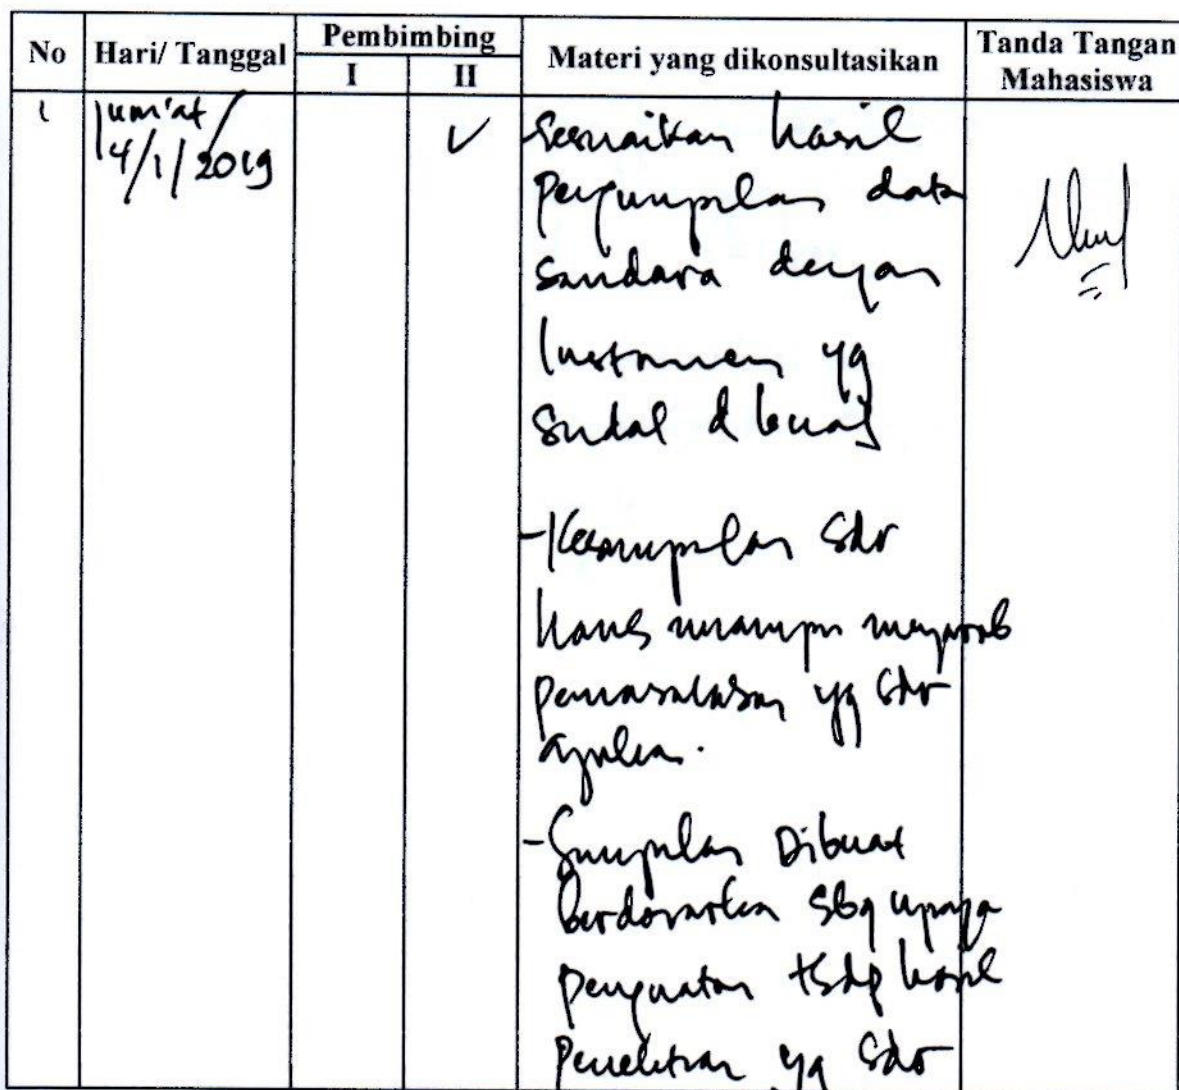 No Hari/ Tanggal Pembimbing Materi yang dikonsultasikan Tanda Tangan Mahasiswa
I II
1 Jum'at/ 4/1/2019 ✓ Sesuaikan hasil
pengumpulan data
saudara dengan
Instrumen yg
sudah d buat
-Kesimpulan sdr
harus mampu menjawab
permasalahan yg sdr
ajukan.
-Simpulan Dibuat
berdasarkan sbg upaya
penguatan thdp hasil
penelitian yg sdr